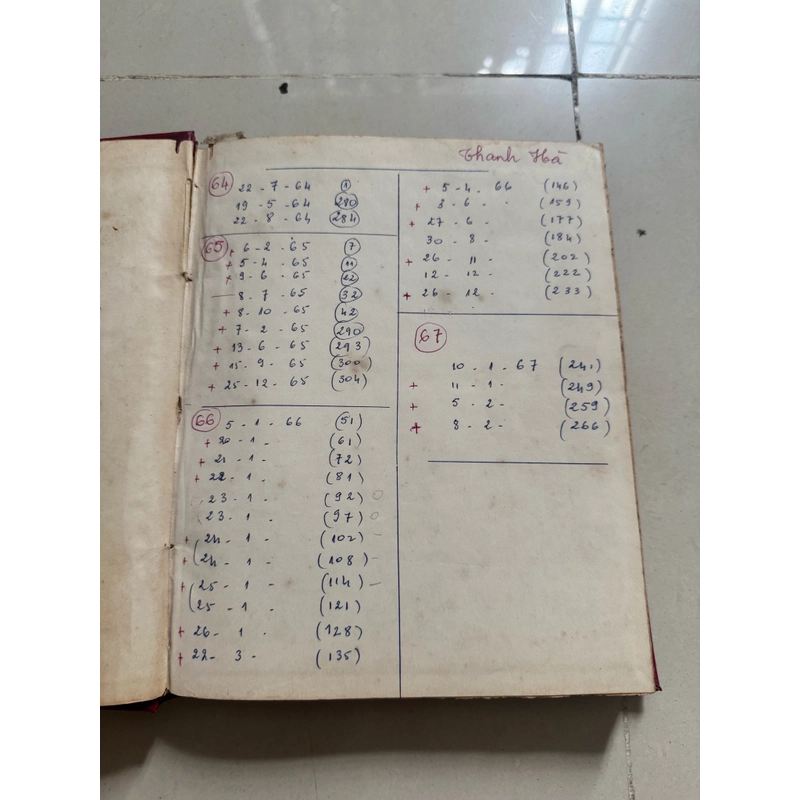 Thanh Hà
64 22 - 7 - 64 (1)
19 - 5 - 64 (280)
22 - 8 - 64 (284)
65 + 6 - 2 - 65 (7)
+ 5 - 4 - 65 (11)
+ 9 - 6 - 65 (22)
- 8 - 7 - 65 (32)
+ 8 - 10 - 65 (42)
+ 7 - 2 - 65 (290)
+ 13 - 6 - 65 (293)
+ 15 - 9 - 65 (300)
+ 25 - 12 - 65 (304)
66 5 - 1 - 66 (51)
+ 20 - 1 - (61)
+ 21 - 1 - (72)
+ 22 - 1 - (81)
23 - 1 - (92) o
23 - 1 - (97) o
+ 24 - 1 - (102) -
+ 24 - 1 - (108) -
+ 25 - 1 - (114) -
25 - 1 - (121)
+ 26 - 1 - (128)
+ 22 - 3 - (135)
+ 5 - 4 - 66 (146)
+ 3 - 6 - - (159)
+ 27 - 6 - (177)
30 - 8 - (184)
+ 26 - 11 - (202)
12 - 12 - (222)
+ 26 - 12 - (233)
67
10 - 1 - 67 (241)
+ 11 - 1 - (249)
+ 5 - 2 - (259)
+ 8 - 2 - (266)